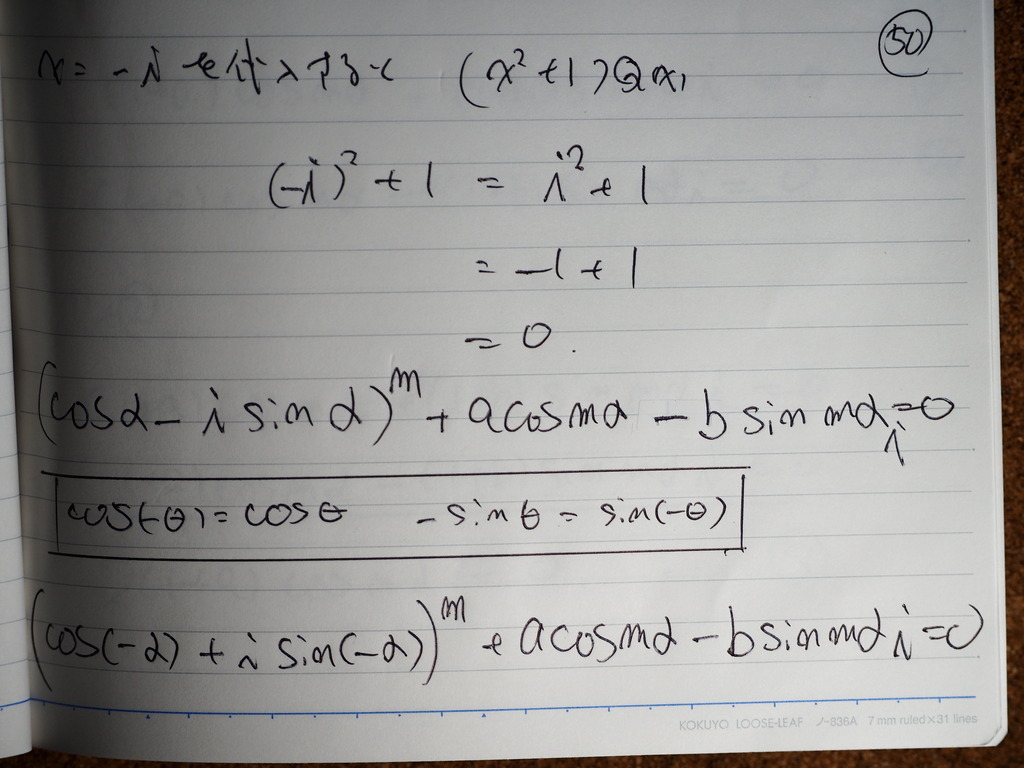 50
x = -i を代入すると (x² + 1) Q(x)
(-i)² + 1 = i² + 1
= -1 + 1
= 0.
(cosα - i sinα)ᵐ + a cos mα - b sin mα i = 0
cos(-θ) = cosθ -sinθ = sin(-θ)
(cos(-α) + i sin(-α))ᵐ + a cos mα - b sin mα i = 0
KOKUYO LOOSE-LEAF ノ-836A 7 mm ruled×31 lines